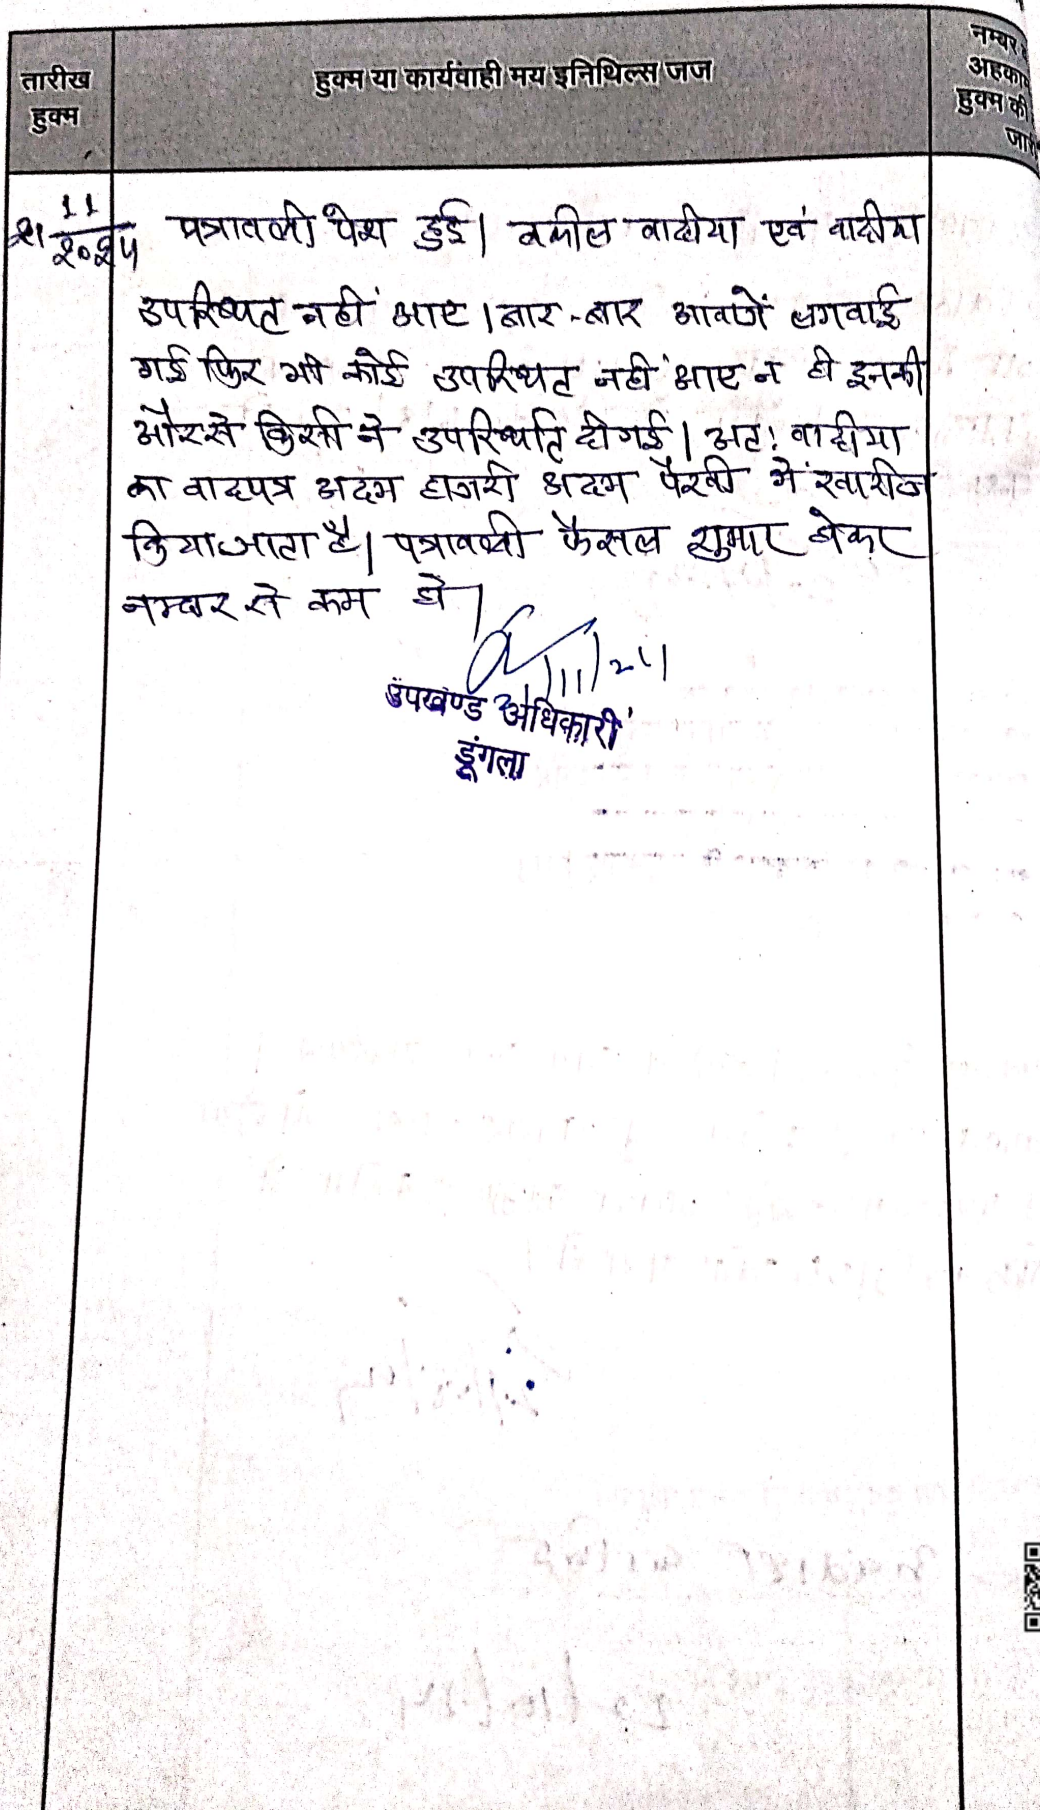 तारीख
हुक्म
हुक्म या कार्यवाही मय इनिथिल्स जज
नम्बर
अहकाम
हुक्म की
जारी
21 11 2024
पत्रावली पेश हुई। वकील वादीया एवं वादीया
उपस्थित नही आए। बार-बार आवाजें लगवाई
गई फिर भी कोई उपस्थित नही आए न ही इनकी
और से किसी ने उपस्थिति दी गई। अतः वादीया
का वादपत्र अदम हाजरी अदम पैरवी में खारीज
किया जाता है। पत्रावली फैसल शुमार होकर
नम्बर से कम हो।
21/11/24
उपखण्ड अधिकारी
डूंगला